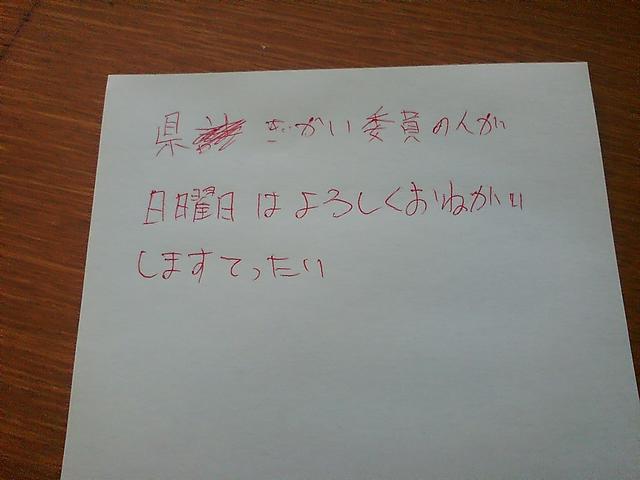 県ぎかい委員の人が
日日曜日はよろしくおねがい
しますてったい